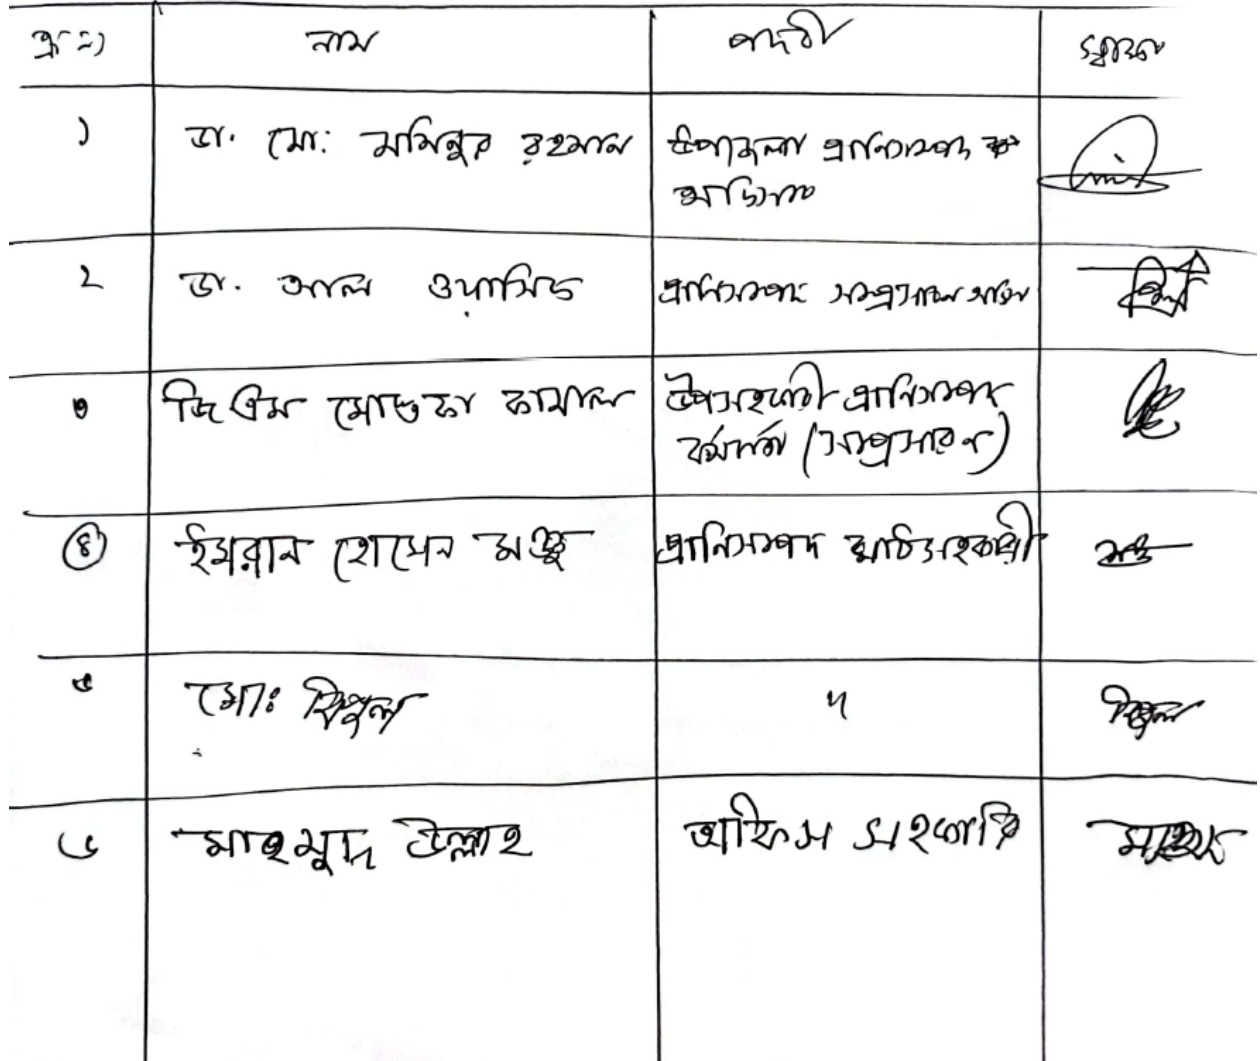 ক্র নং নাম পদবী স্বাক্ষর
১ ডা. মো: মমিনুর রহমান উপজেলা প্রানিসম্পদ
অফিসার
২ ডা. আল ওয়াসিত প্রানিসম্পদ সম্প্রসারন
৩ জি এম মোস্তফা কামাল উপসহকারী প্রানিসম্পদ
কর্মকর্তা (সম্প্রসারণ)
৪ ইমরান হোসেন মঞ্জু প্রানিসম্পদ মাঠসহকারী
৫ মোঃ বিপুল " বিপুল
৬ মাহমুদ উল্লাহ অফিস সহকারি